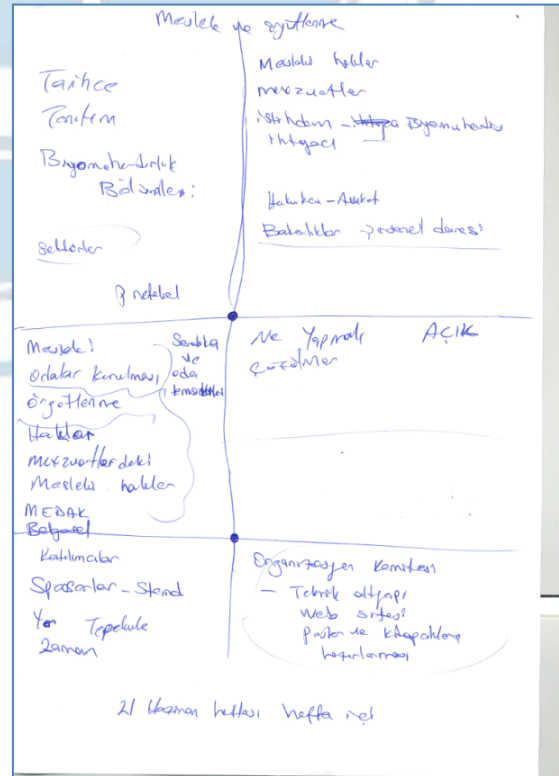 Meslek ve örgütlenme
Tarihçe
Tanıtım
Biyomühendislik
Bölümleri:
Sektörler
Mesleki haklar
mevzuatlar
istihdam - Biyomühendis
ihtiyacı
Hukukçu - Avukat
Bakanlıklar personel dairesi
Mesleki
Odalar kurulması
örgütlenme
Haklar
mevzuatlardaki
Mesleki haklar
MEDAK
Belgesel
Sendika
ve
oda
temsilcileri
Ne Yapmalı AÇIK
çözümler
Katılımcılar
Sponsorlar - Stand
Yer Tepekule
Zaman
Organizasyon Komitesi
- Teknik altyapı
Web sitesi
poster ve kitapçıkların
hazırlanması
21 Haziran haftası hafta içi